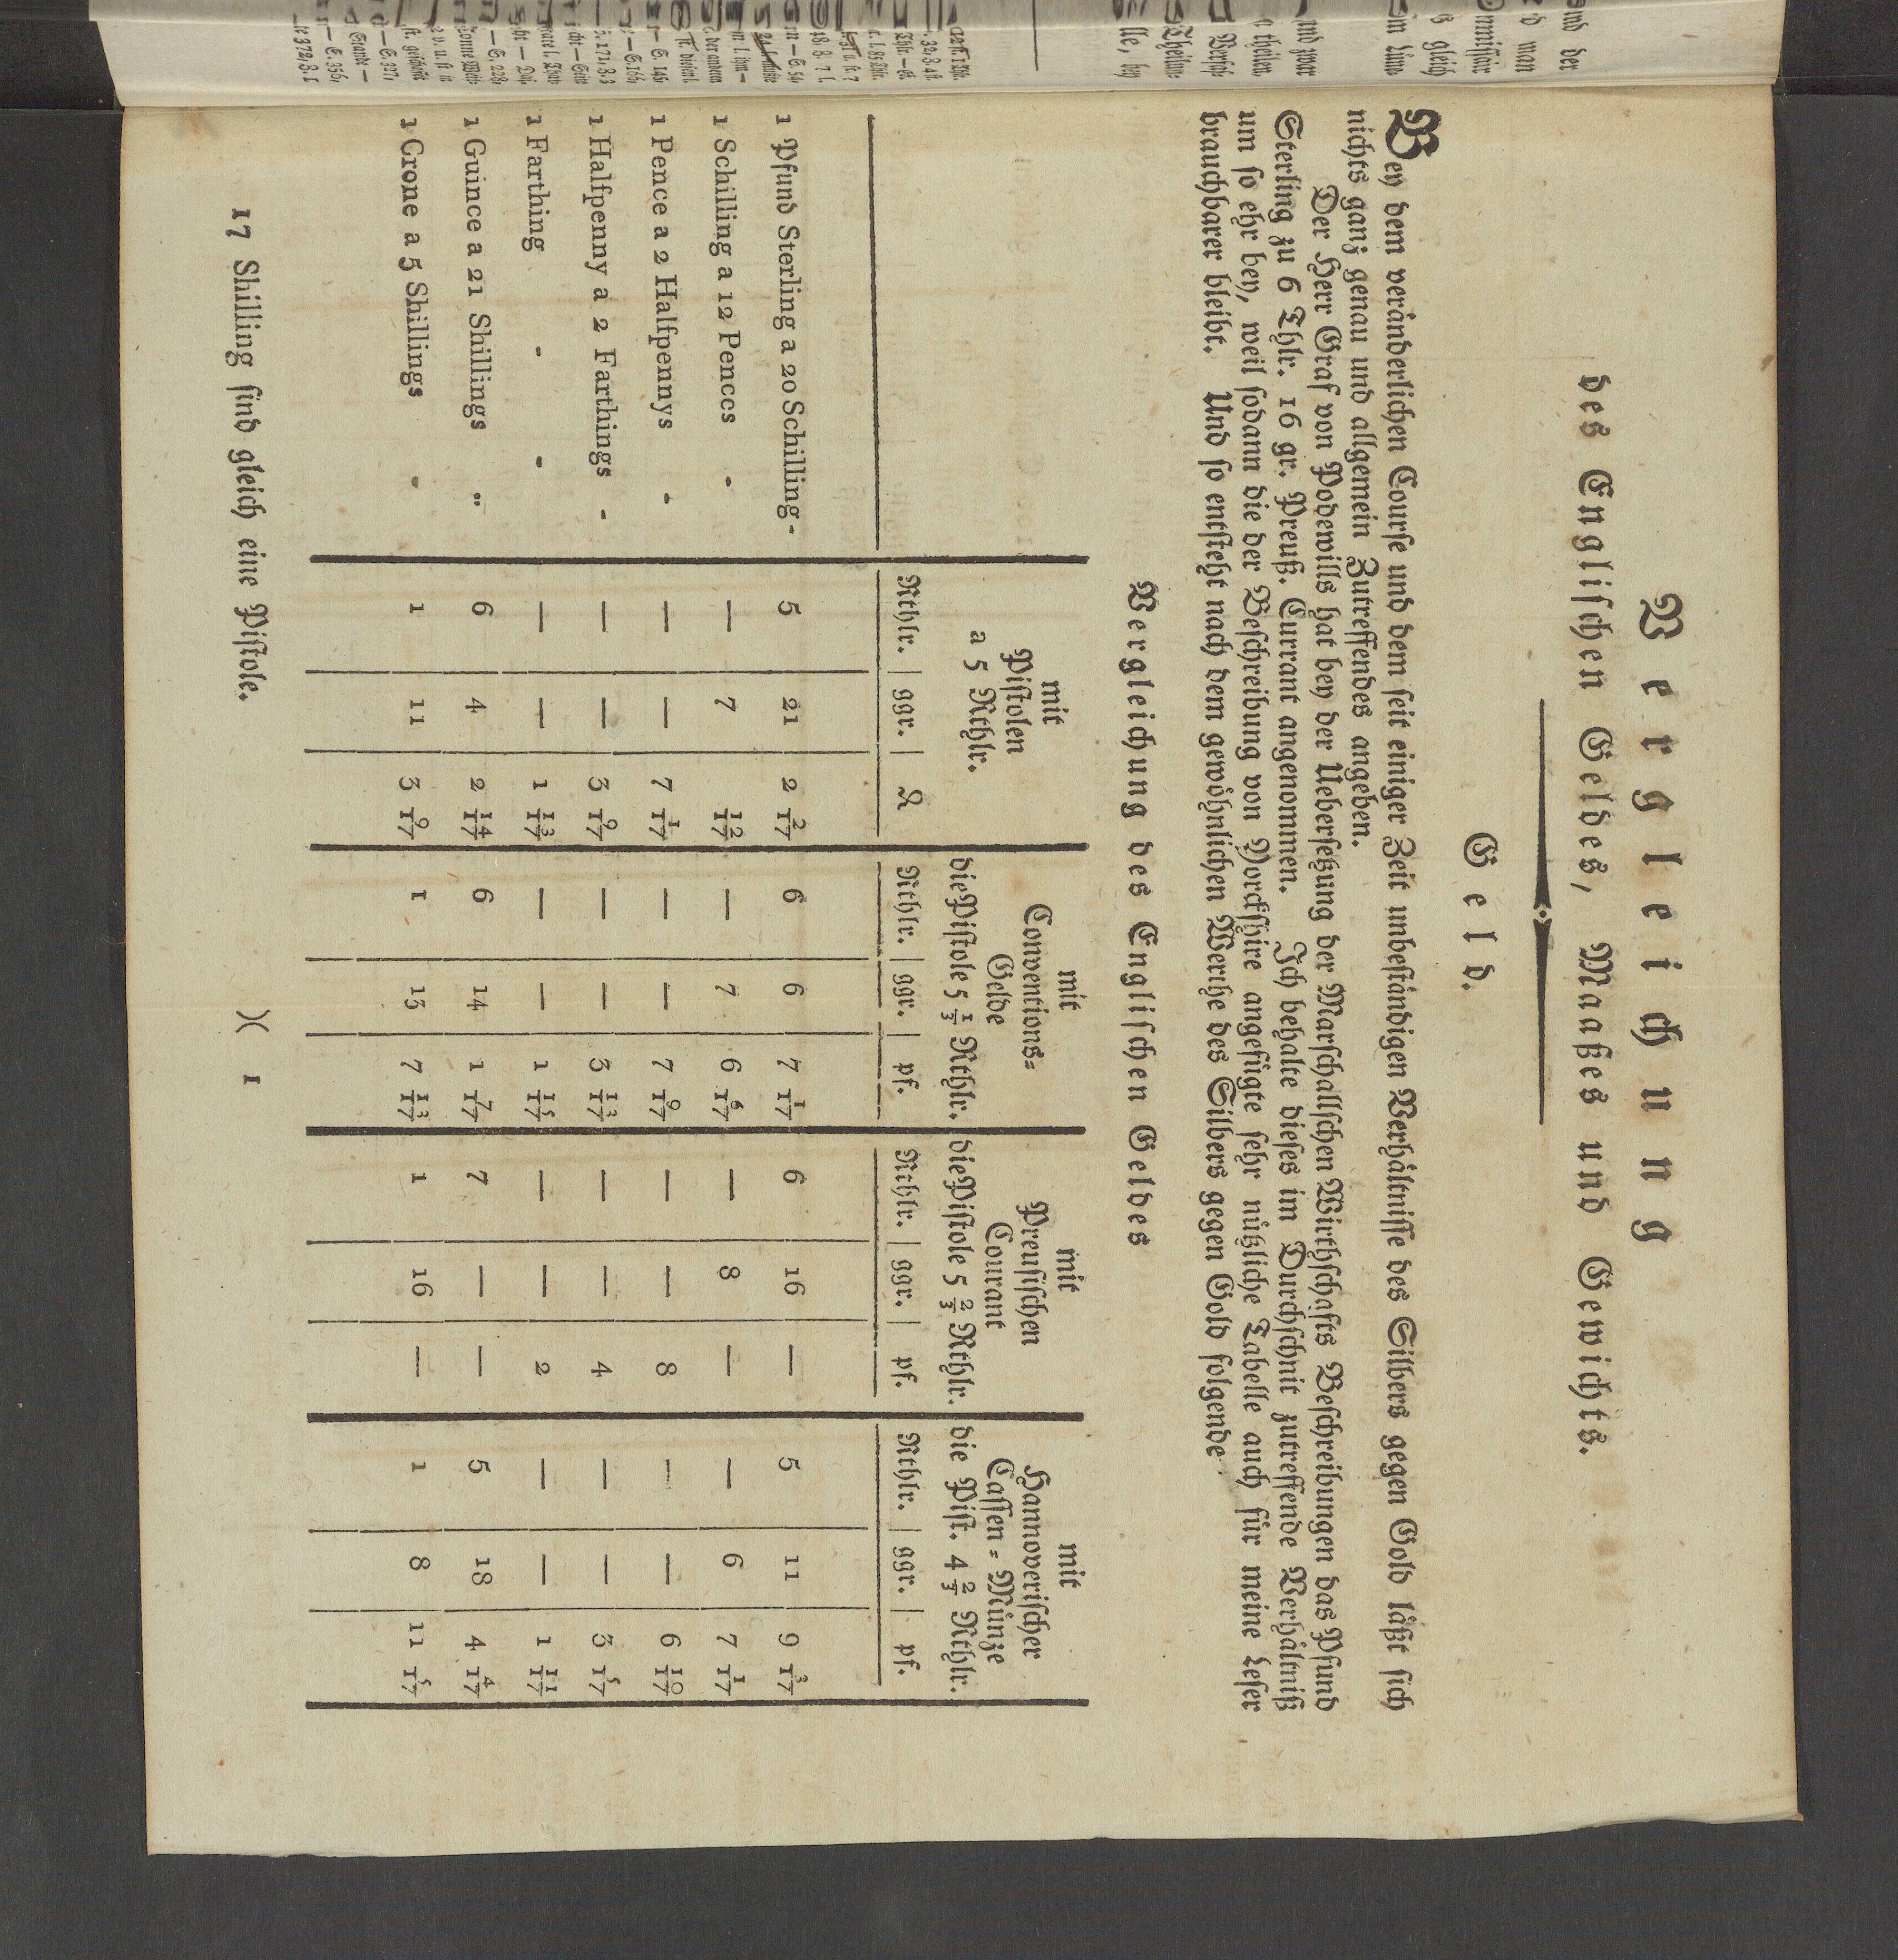 Vergleichung
des Englischen Geldes, Maaßes und Gewichts.
Geld.
Bey dem veränderlichen Course und dem seit einiger Zeit unbeständigen Verhältnisse des Silbers gegen Gold läßt sich
nichts ganz genau und allgemein Zutreffendes angeben.
Der Herr Graf von Podewills hat bey der Uebersetzung der Marschallschen Wirthschafts Beschreibungen das Pfund
Sterling zu 6 Thlr. 16 gr. Preuß. Currant angenommen. Ich behalte dieses im Durchschnit zutreffende Verhältniß
um so ehr bey, weil sodann die der Beschreibung von Yorckshire angefügte sehr nützliche Tabelle auch für meine Leser
brauchbarer bleibt. Und so entsteht nach dem gewöhnlichen Werthe des Silbers gegen Gold folgende
Vergleichung des Englischen Geldes
mit Pistolen a 5 Rthlr. | mit Conventions= Gelde die Pistole 5 1/3 Rthlr. | mit Preusischen Courant die Pistole 5 2/3 Rthlr. | mit Hannoverischer Cassen=Münze die Pist. 4 2/3 Rthlr.
Rthlr. | ggr. | ₰ | Rthlr. | ggr. | pf. | Rthlr. | ggr. | pf. | Rthlr. | ggr. | pf.
1 Pfund Sterling a 20 Schilling - 5 21 2 2/17 6 6 7 1/17 6 16 — 5 11 9 3/17
1 Schilling a 12 Pences - — 7 12/17 — 7 6 6/17 — 8 — — 6 7 1/17
1 Pence a 2 Halfpennys - — — 7 1/17 — — 7 9/17 — — 8 — — 6 10/17
1 Halfpenny a 2 Farthings - — — 3 9/17 — — 3 13/17 — — 4 — — 3 5/17
1 Farthing - - — — 1 13/17 — — 1 15/17 — — 2 — — 1 11/17
1 Guince a 21 Shillings - 6 4 2 14/17 6 14 1 7/17 7 — — 5 18 4 4/17
1 Crone a 5 Shillings - 1 11 3 9/17 1 13 7 13/17 1 16 — 1 8 11 5/17
17 Shilling sind gleich eine Pistole.
)( 1